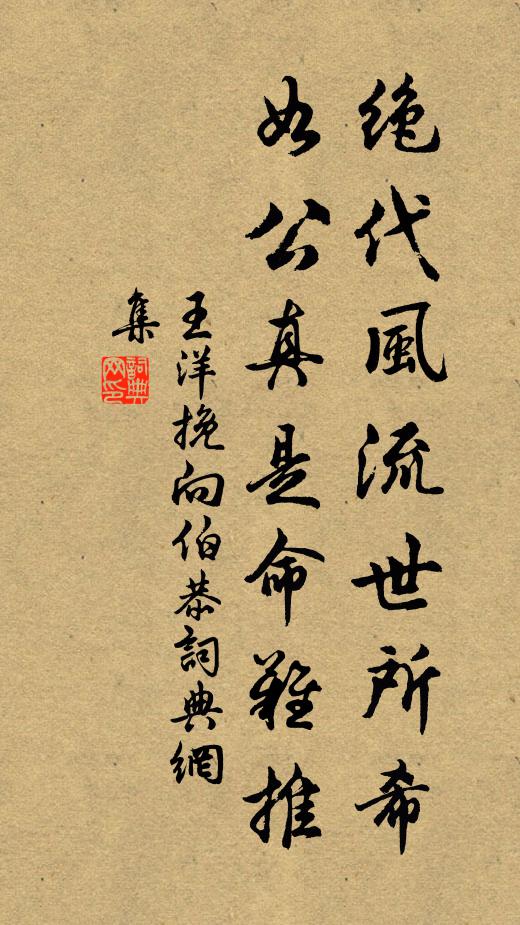 绝代風流世所希
如公真是命難推
王洋挽向伯恭詞典網
集
詞典
网印